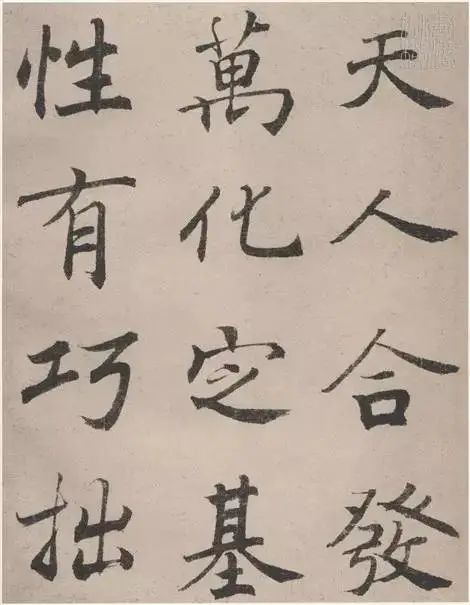 天人合發
萬化定基
性有巧拙